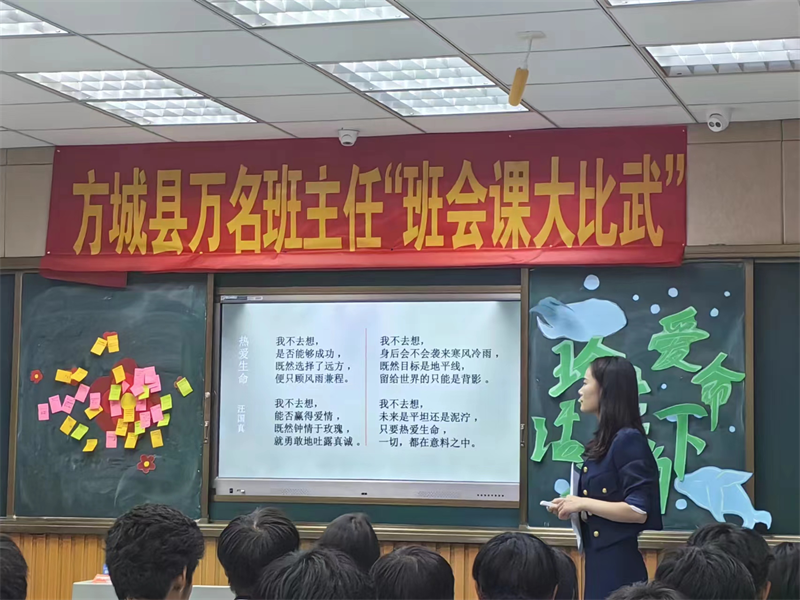 方城县万名班主任“班会课大比武”
热爱生命
汪国真
我不去想，
是否能够成功，
既然选择了远方，
便只顾风雨兼程。
我不去想，
能否赢得爱情，
既然钟情于玫瑰，
就勇敢地吐露真诚。
我不去想，
身后会不会袭来寒风冷雨，
既然目标是地平线，
留给世界的只能是背影。
我不去想，
未来是平坦还是泥泞，
只要热爱生命，
一切，都在意料之中。
爱
命
下
活